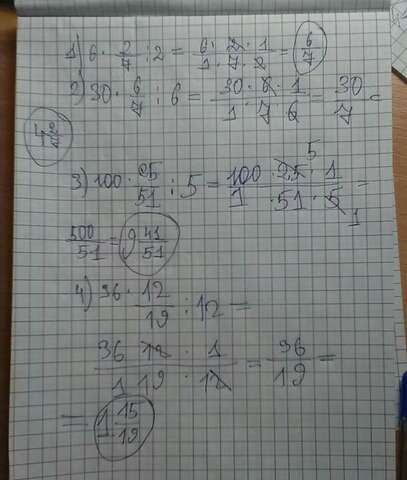 1) 6 · 2/7 : 2 = 6 · 2 · 1 / 1 · 7 · 2 = 6/7
2) 30 · 6/7 : 6 = 30 · 6 · 1 / 1 · 7 · 6 = 30/7 =
4 2/7
3) 100 · 25/51 : 5 = 100 · 25 5 · 1 / 1 · 51 · 5 1 =
500/51 = 9 41/51
4) 36 · 12/19 : 12 =
36 12 · 1 / 1 19 · 12 = 36/19 =
= 1 15/19